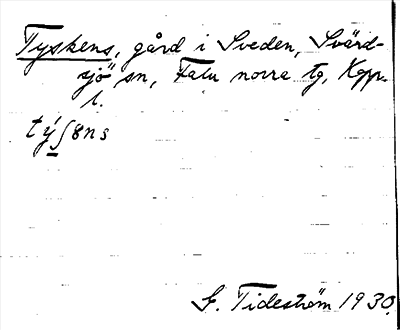 Tyskens, gård i Sveden, Svärd-
sjö sn, Falu norra tg, Kopp.
l.
týʃ8ns
F. Tideström 1930.